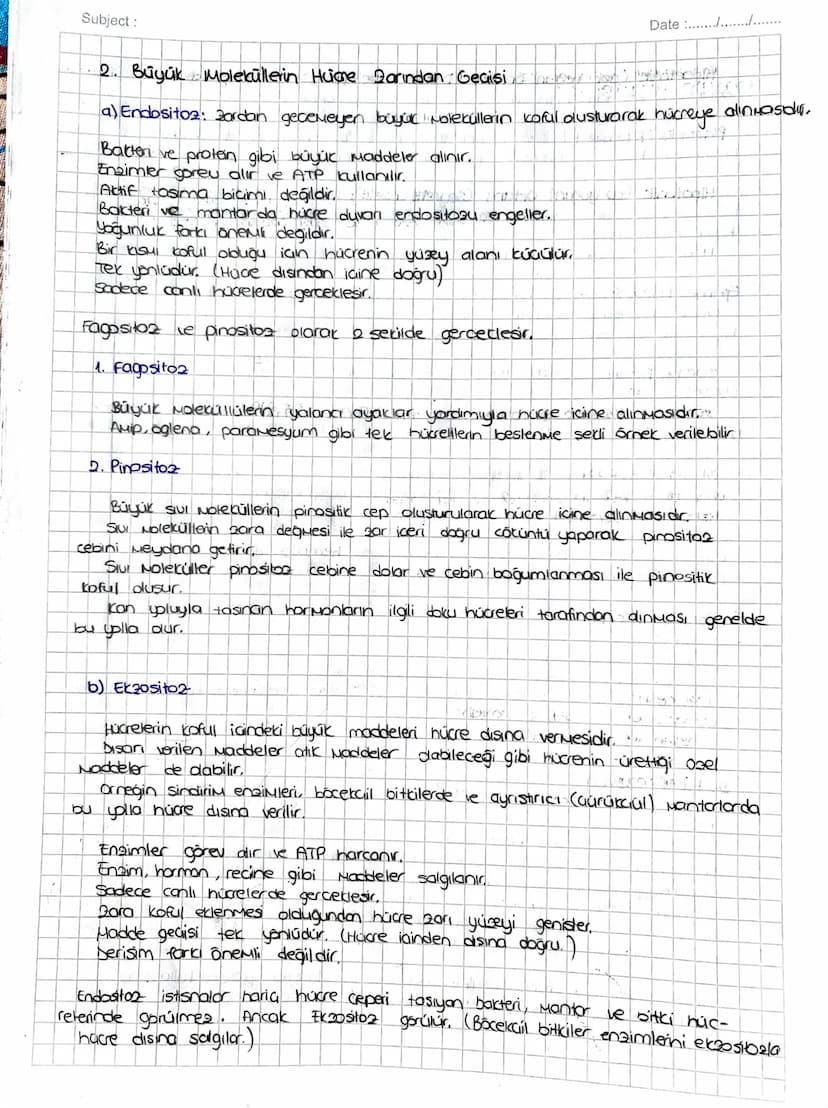 Subject :
Date :......./......./.......
2. Büyük Moleküllerin Hücre Zarından Geçişi
a) Endositoz: Zardan geçemeyen büyük moleküllerin koful oluşturarak hücreye alınmasıdır.
Bakteri ve protein gibi büyük maddeler alınır.
Enzimler görev alır ve ATP kullanılır.
Aktif taşıma biçimi değildir.
Bakteri ve mantarda hücre duvarı endositozu engeller.
Yoğunluk farkı önemli değildir.
Bir kısmı koful olduğu için hücrenin yüzey alanı küçülür.
Tek yönlüdür. (Hücre dışından içine doğru)
Sadece canlı hücrelerde gerçekleşir.
Fagositoz ve pinositoz olarak 2 şekilde gerçekleşir.
1. Fagositoz
Büyük moleküllülerin yalancı ayaklar yardımıyla hücre içine alınmasıdır.
Amip, öglena, paramesyum gibi tek hücrelilerin beslenme şekli örnek verilebilir
2. Pinositoz
Büyük sıvı moleküllerin pinositik cep oluşturularak hücre içine alınmasıdır.
Sıvı moleküllerin zara değmesi ile zar içeri doğru çöküntü yaparak pinositoz
cebini meydana getirir.
Sıvı moleküller pinositoz cebine dolar ve cebin boğumlanması ile pinositik
koful oluşur.
Kan yoluyla taşınan hormonların ilgili doku hücreleri tarafından alınması genelde
bu yolla olur.
b) Ekzositoz
Hücrelerin koful içindeki büyük maddeleri hücre dışına vermesidir.
Dışarı verilen maddeler atık maddeler olabileceği gibi hücrenin ürettiği özel
maddeler de olabilir.
Örneğin sindirim enzimleri, böcekcil bitkilerde ve ayrıştırıcı (çürükçül) mantarlarda
bu yolla hücre dışına verilir.
Enzimler görev alır ve ATP harcanır.
Enzim, hormon, reçine gibi maddeler salgılanır.
Sadece canlı hücrelerde gerçekleşir.
Zara koful eklenmesi olduğundan hücre zarı yüzeyi genişler.
Madde geçişi tek yönlüdür. (Hücre içinden dışına doğru.)
Derişim farkı önemli değildir.
Endositoz istisnalar hariç hücre çeperi taşıyan bakteri, mantar ve bitki hüc-
relerinde görülmez. Ancak Ekzositoz görülür. (Böcekcil bitkiler enzimlerini ekzositozla
hücre dışına salgılar.)